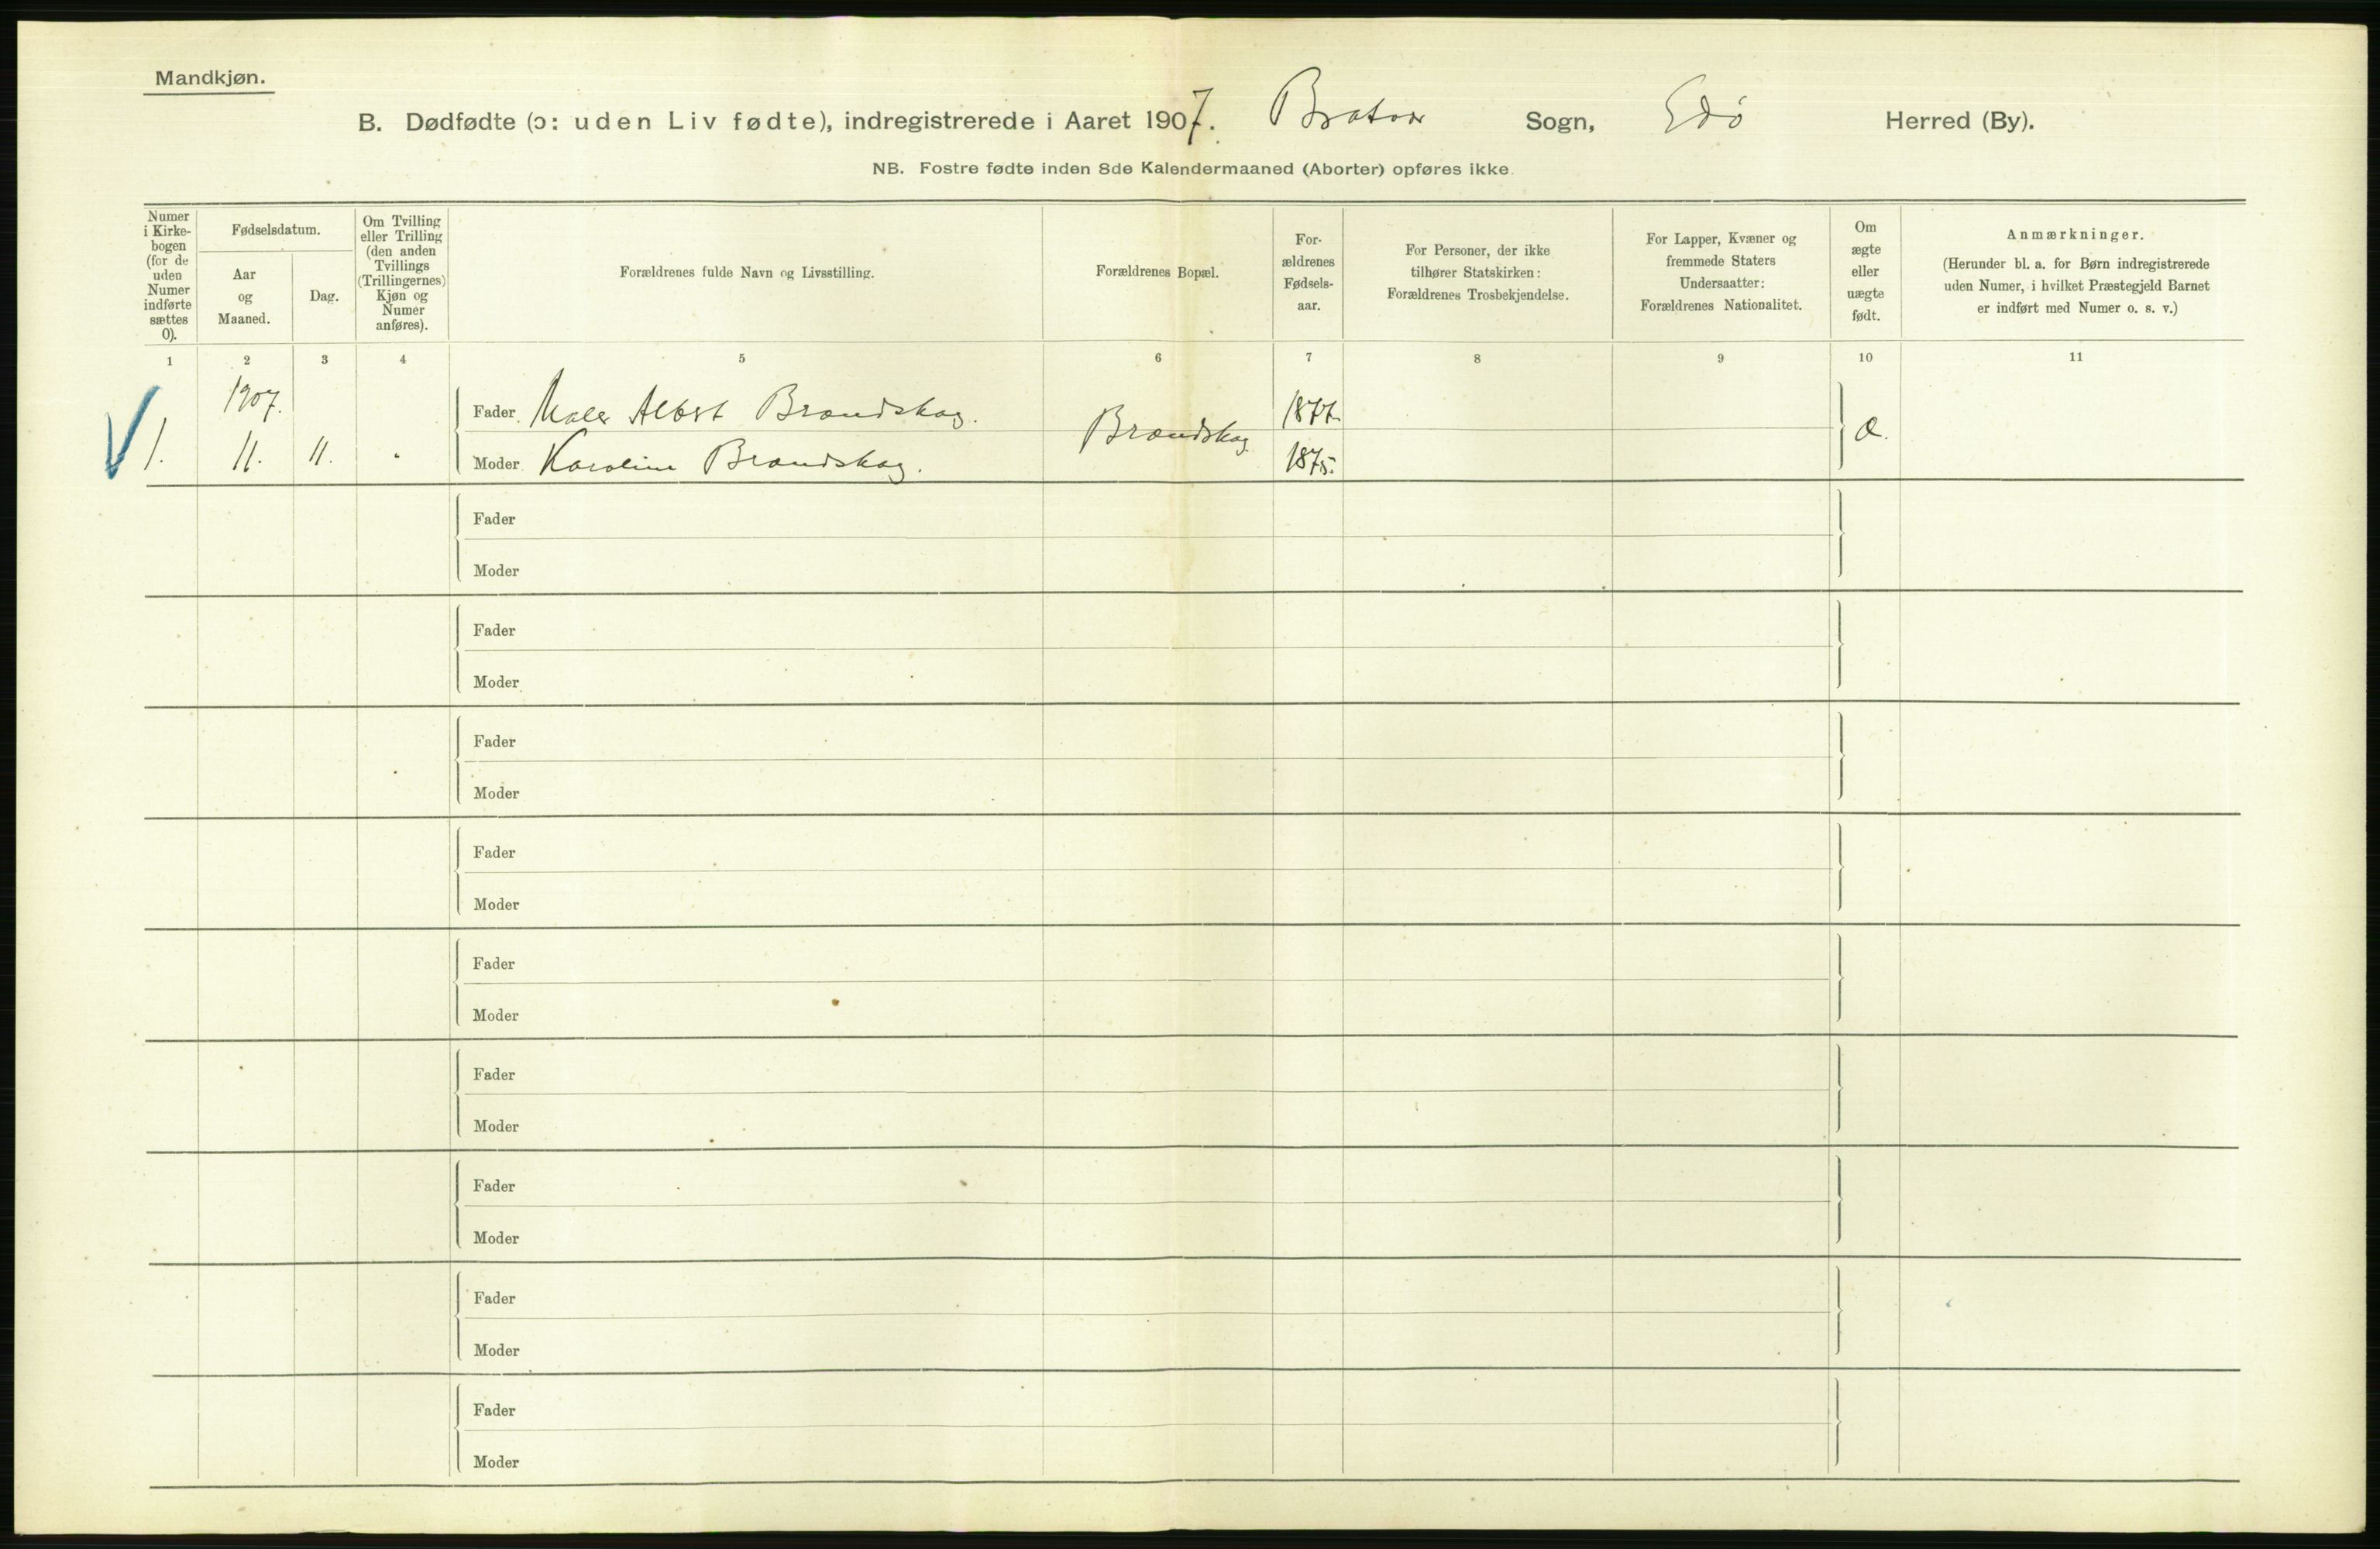 Mandkjøn.
B. Dødfødte (ɔ: uden Liv fødte), indregistrerede i Aaret 1907. Bratvær Sogn, Edø Herred (By).
NB. Fostre fødte inden 8de Kalendermaaned (Aborter) opføres ikke.
Numer i Kirke-bogen (for de uden Numer indførte sættes 0).
Fødselsdatum.
Aar og Maaned.
Dag.
Om Tvilling eller Trilling (den anden Tvillings (Trillingernes) Kjøn og Numer anføres).
Forældrenes fulde Navn og Livsstilling.
Forældrenes Bopæl.
For-ældrenes Fødsels-aar.
For Personer, der ikke tilhører Statskirken: Forældrenes Trosbekjendelse.
For Lapper, Kvæner og fremmede Staters Undersaatter: Forældrenes Nationalitet.
Om ægte eller uægte født.
Anmærkninger.
(Herunder bl. a. for Børn indregistrerede uden Numer, i hvilket Præstegjeld Barnet er indført med Numer o. s. v.)
1 2 3 4 5 6 7 8 9 10 11
1907.
Fader Maler Albert Brændskag. 1877.
1. 11. 11. Brændskag æ.
Moder Karoline Brændskag. 1875.
Fader
Moder
Fader
Moder
Fader
Moder
Fader
Moder
Fader
Moder
Fader
Moder
Fader
Moder
Fader
Moder
Fader
Moder